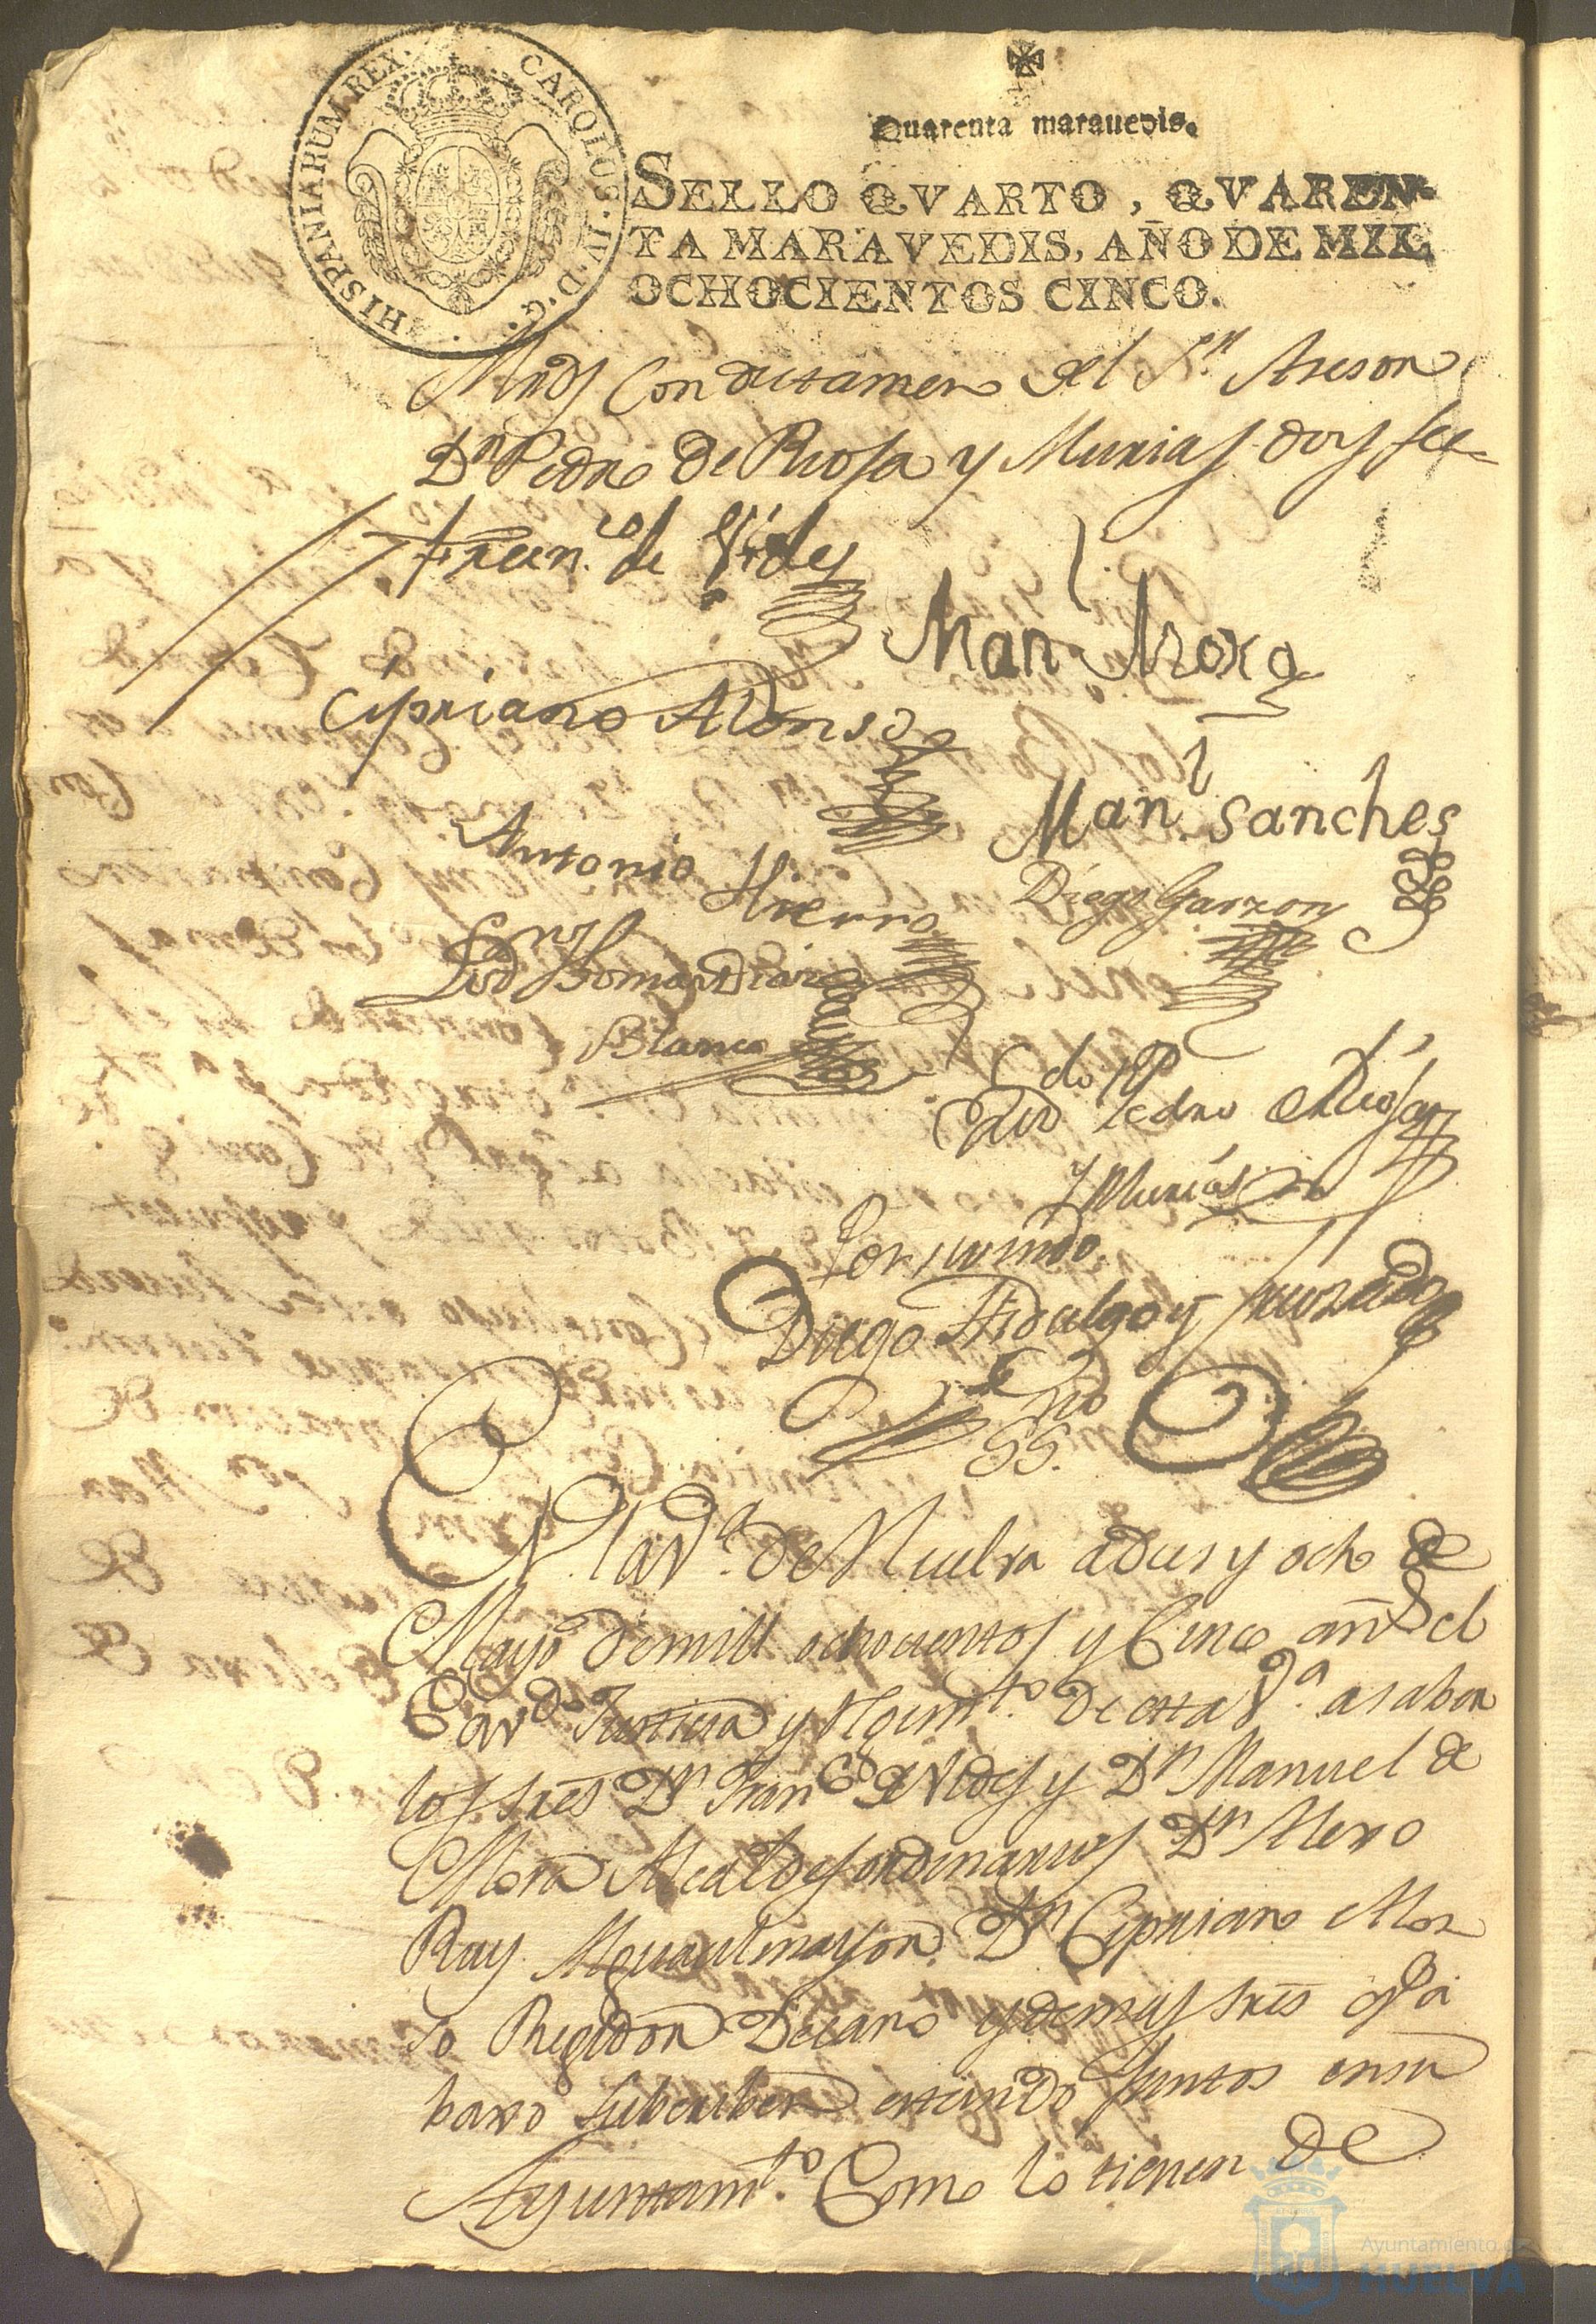 CAROLUS·IV·D·G· HISPANIARUM REX·
Quarenta marauedis.
SELLO QVARTO, QVAREN-
TA MARAVEDIS, AÑO DE MIL
OCHOCIENTOS CINCO.
Mrds Con dictamen del Sr. Asesor
Dn. Pedro de Riosa y Murias doy fee
Franco. de Vides
Manl Mora
Cipriano Alonso
Manl. Sanches
Antonio Hierro
Diego Garzon
Ldo Thomas Diaz
Blanco
Ldo Dn Pedro de Riosa
y Murias
Por su mdo.
Diego Hidalgo y
En la Va. de Huelva a dies y ocho de
Mayo de mill ochocientos y Cinco años el
Cavdo. Justicia y Regimto. de esta Va. a saber
los sres Dn Franco de Vides y Dn Manuel de
Mora Alcaldes ordinarios Dn Alexo
Ruy Alguacil mayor Dn Cipriano Alon
so Regidor Decano y demas sres q. a
baxo subscriben estando Juntos en su
Ayuntamto. Como lo tienen de
Ayuntamiento de
HUELVA